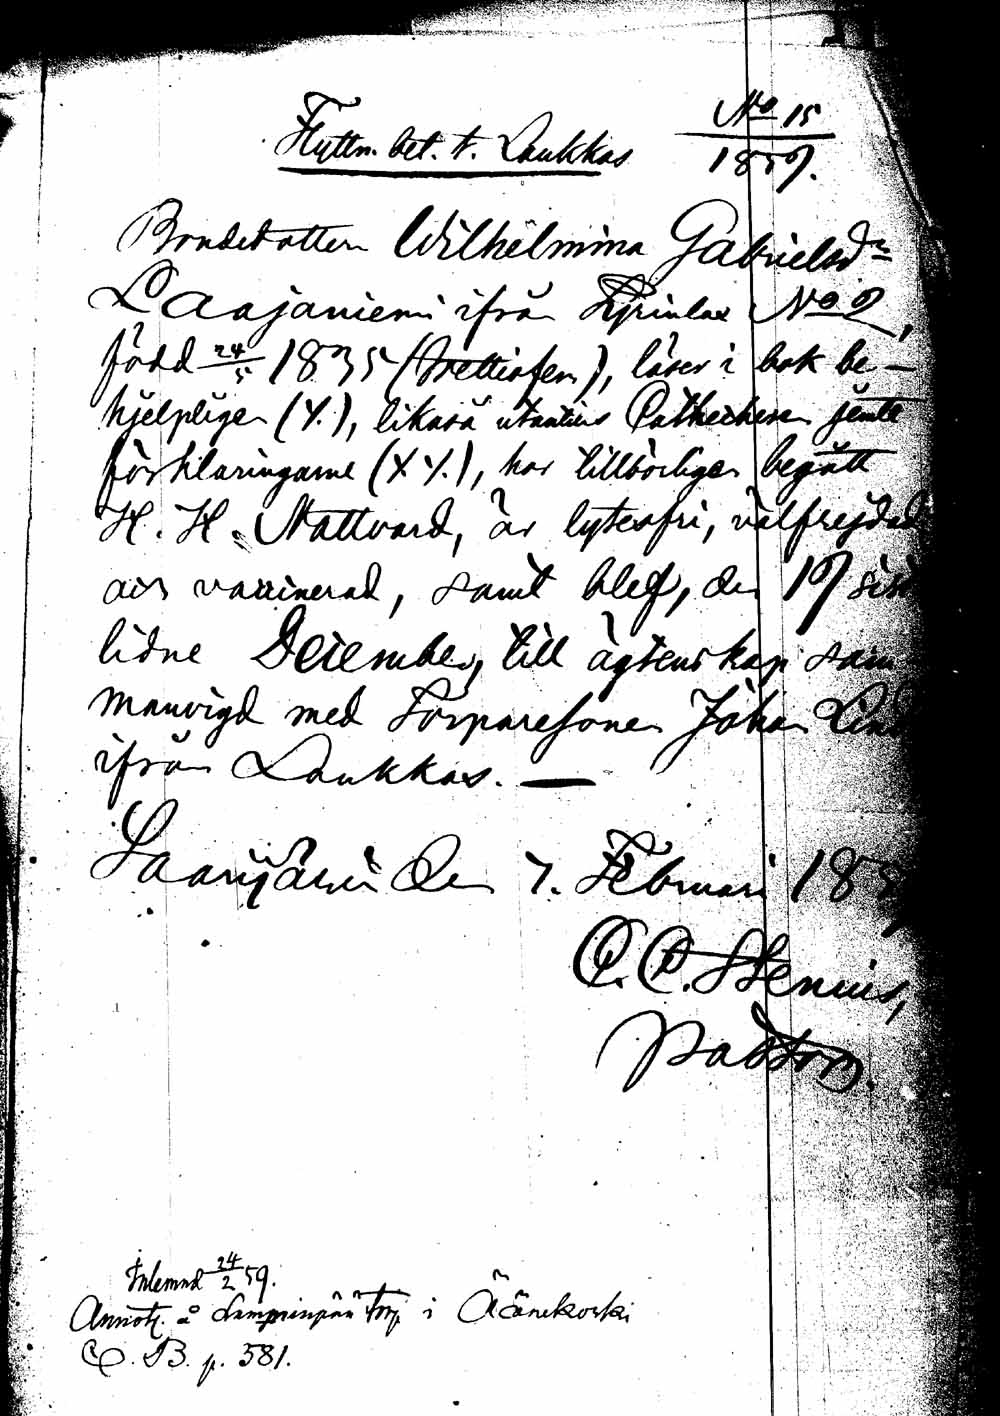 Flyttn. bet. t. Laukkas
No 15
1859.
Bondedottern Wilhelmina Gabrielsdr
Laajaniemi ifrån No 2,
född 24/5 1835 (trettiofem), läser i bok be-
hjelpligen (Y.), likaså utantius Cathechesen jemte
förklaringarne (X Y.), har tillbörligen begått
H. H. Nattvard, är lytesfri, välfrejdad
och vaccinerad, samt blef, den 17 sist
lidne December, till ägtenskap sam
manvigd med Torparesonen Johan Lind
ifrån Laukkas. —
Saarijärvi den 7. Februari 185
C. C. Stenius,
Pastor.
Inlemnad 24/2 59.
Annot. å torp i Äänekoski
C. B. p. 381.